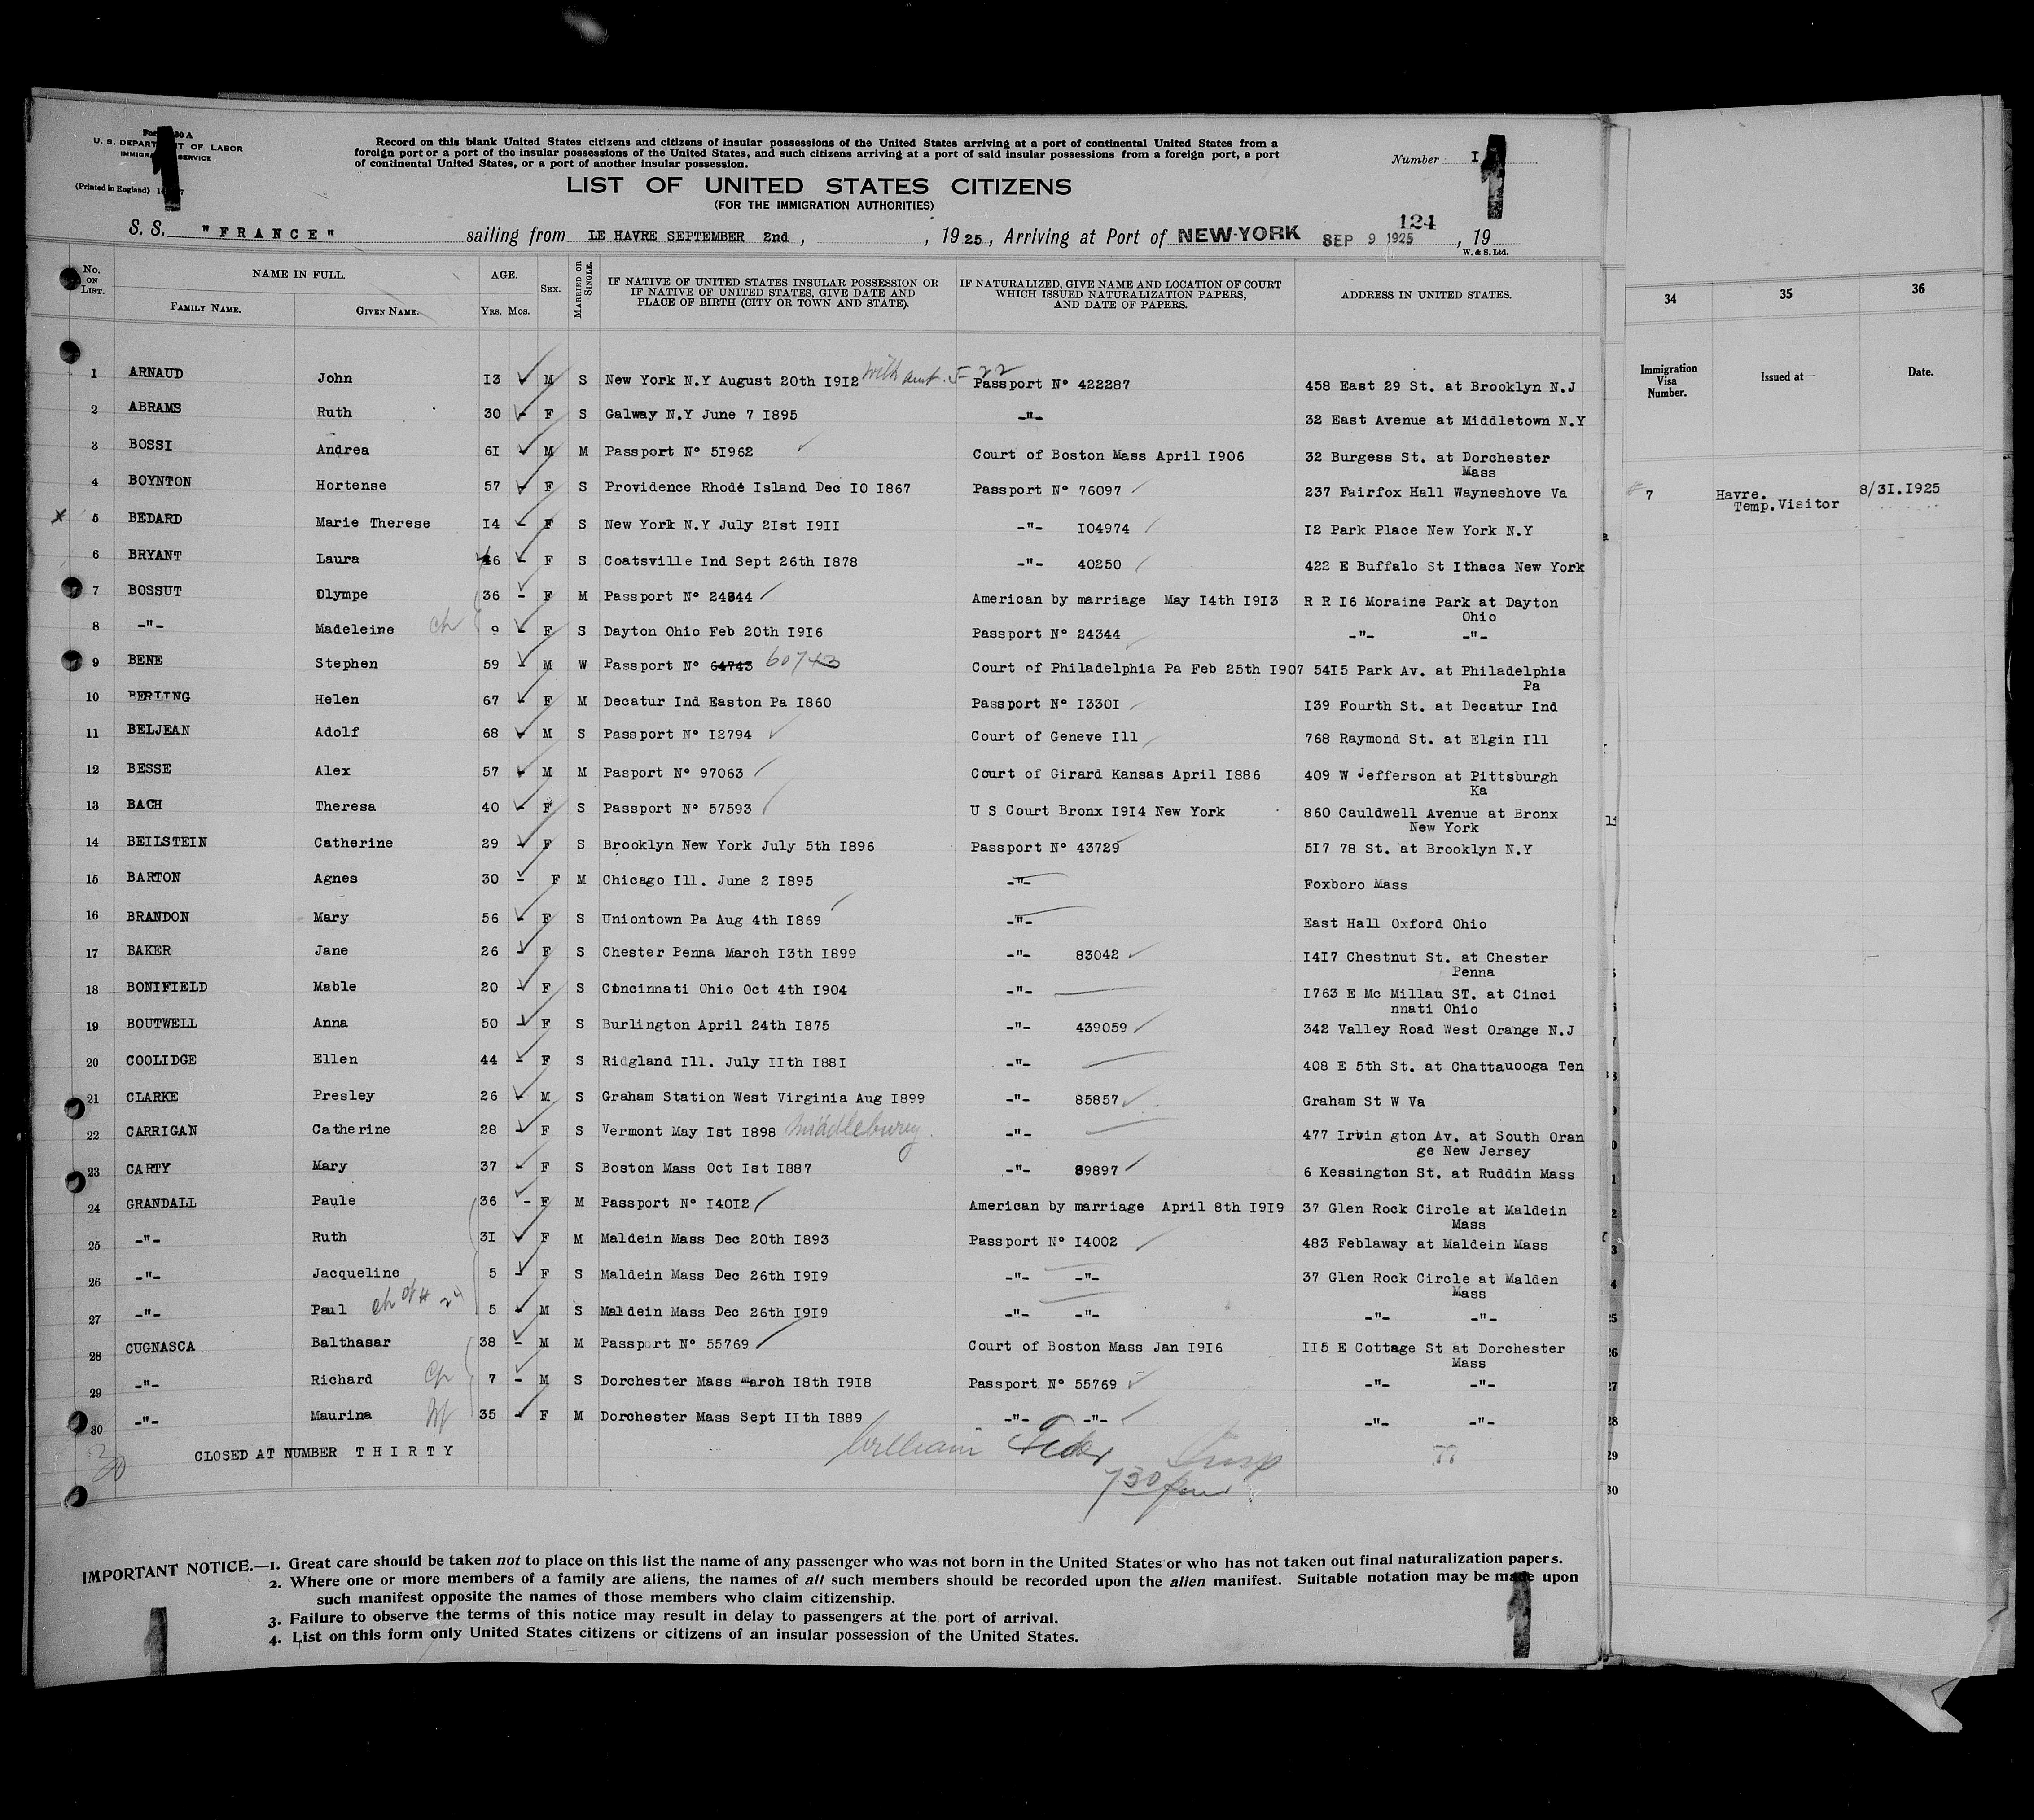 Form 30 A
U. S. DEPARTMENT OF LABOR
IMMIGRATION SERVICE
(Printed in England)
Record on this blank United States citizens and citizens of insular possessions of the United States arriving at a port of continental United States from a
foreign port or a port of the insular possessions of the United States, and such citizens arriving at a port of said insular possessions from a foreign port, a port
of continental United States, or a port of another insular possession.
Number I
LIST OF UNITED STATES CITIZENS
(FOR THE IMMIGRATION AUTHORITIES)
124
S. S. "FRANCE" sailing from LE HAVRE SEPTEMBER 2nd, , 1925, Arriving at Port of NEW-YORK SEP 9 1925, 19
W. & S. Ltd.
No. ON LIST. NAME IN FULL. FAMILY NAME. GIVEN NAME. AGE. YRS. MOS. SEX. MARRIED OR SINGLE. IF NATIVE OF UNITED STATES INSULAR POSSESSION OR IF NATIVE OF UNITED STATES, GIVE DATE AND PLACE OF BIRTH (CITY OR TOWN AND STATE). IF NATURALIZED, GIVE NAME AND LOCATION OF COURT WHICH ISSUED NATURALIZATION PAPERS, AND DATE OF PAPERS. ADDRESS IN UNITED STATES.
1 ARNAUD John I3 M S New York N.Y August 20th I9I2 with aunt. 5-22 Passport N° 422287 458 East 29 St. at Brooklyn N.J
2 ABRAMS Ruth 30 - F S Galway N.Y June 7 I895 -"- 32 East Avenue at Middletown N.Y
3 BOSSI Andrea 6I - M M Passport N° 5I962 Court of Boston Mass April I906 32 Burgess St. at Dorchester
Mass
4 BOYNTON Hortense 57 - F S Providence Rhode Island Dec IO I867 Passport N° 76097 237 Fairfox Hall Wayneshove Va
5 BEDARD Marie Therese I4 - F S New York N.Y July 2Ist I9II -"- IO4974 I2 Park Place New York N.Y
6 BRYANT Laura 46 - F S Coatsville Ind Sept 26th I878 -"- 40250 422 E Buffalo St Ithaca New York
7 BOSSUT Olympe 36 - F M Passport N° 24344 American by marriage May I4th I9I3 R R I6 Moraine Park at Dayton
Ohio
8 -"- Madeleine ch 9 - F S Dayton Ohio Feb 20th I9I6 Passport N° 24344 -"- -"-
9 BENE Stephen 59 - M W Passport N° 64743 60743 Court of Philadelphia Pa Feb 25th I907 54I5 Park Av. at Philadelphia
Pa
10 BERLING Helen 67 - F M Decatur Ind Easton Pa I860 Passport N° I330I I39 Fourth St. at Decatur Ind
11 BELJEAN Adolf 68 - M S Passport N° I2794 Court of Geneve Ill 768 Raymond St. at Elgin Ill
12 BESSE Alex 57 - M M Pasport N° 97063 Court of Girard Kansas April I886 409 W Jefferson at Pittsburgh
Ka
13 BACH Theresa 40 - F S Passport N° 57593 U S Court Bronx I9I4 New York 860 Cauldwell Avenue at Bronx
New York
14 BEILSTEIN Catherine 29 - F S Brooklyn New York July 5th I896 Passport N° 43729 5I7 78 St. at Brooklyn N.Y
15 BARTON Agnes 30 - F M Chicago Ill. June 2 I895 -"- Foxboro Mass
16 BRANDON Mary 56 - F S Uniontown Pa Aug 4th I869 -"- East Hall Oxford Ohio
17 BAKER Jane 26 - F S Chester Penna March I3th I899 -"- 83042 I4I7 Chestnut St. at Chester
Penna
18 BONIFIELD Mable 20 - F S Cincinnati Ohio Oct 4th I904 -"- I763 E Mc Millau ST. at Cinci
nnati Ohio
19 BOUTWELL Anna 50 - F S Burlington April 24th I875 -"- 439059 342 Valley Road West Orange N.J
20 COOLIDGE Ellen 44 - F S Ridgland Ill. July IIth I88I -"- 408 E 5th St. at Chattauooga Ten
21 CLARKE Presley 26 - M S Graham Station West Virginia Aug I899 -"- 85857 Graham St W Va
22 CARRIGAN Catherine 28 - F S Vermont May Ist I898 Middlebury. -"- 477 Irvin gton Av. at South Oran
ge New Jersey
23 CARTY Mary 37 - F S Boston Mass Oct Ist I887 -"- 89897 6 Kessington St. at Ruddin Mass
24 GRANDALL Paule 36 - F M Passport N° I40I2 American by marriage April 8th I9I9 37 Glen Rock Circle at Maldein
Mass
25 -"- Ruth 3I - F M Maldein Mass Dec 20th I893 Passport N° I4002 483 Feblaway at Maldein Mass
26 -"- Jacqueline 5 - F S Maldein Mass Dec 26th I9I9 -"- -"- 37 Glen Rock Circle at Malden
Mass
27 -"- Paul ch of # 24 5 - M S Maldein Mass Dec 26th I9I9 -"- -"- -"- -"-
28 CUGNASCA Balthasar 38 - M M Passport N° 55769 Court of Boston Mass Jan I9I6 II5 E Cottage St at Dorchester
Mass
29 -"- Richard ch 7 - M S Dorchester Mass March I8th I9I8 Passport N° 55769 -"- -"-
30 -"- Maurina Wf 35 - F M Dorchester Mass Sept IIth I889 -"- -"- -"- -"-
30 CLOSED AT NUMBER THIRTY William Insp
7 30 pm
IMPORTANT NOTICE.—1. Great care should be taken not to place on this list the name of any passenger who was not born in the United States or who has not taken out final naturalization papers.
2. Where one or more members of a family are aliens, the names of all such members should be recorded upon the alien manifest. Suitable notation may be made upon
such manifest opposite the names of those members who claim citizenship.
3. Failure to observe the terms of this notice may result in delay to passengers at the port of arrival.
4. List on this form only United States citizens or citizens of an insular possession of the United States.
34 35 36
Immigration Visa Number. Issued at— Date.
7 Havre. 8/3I.I925
Temp.Visitor